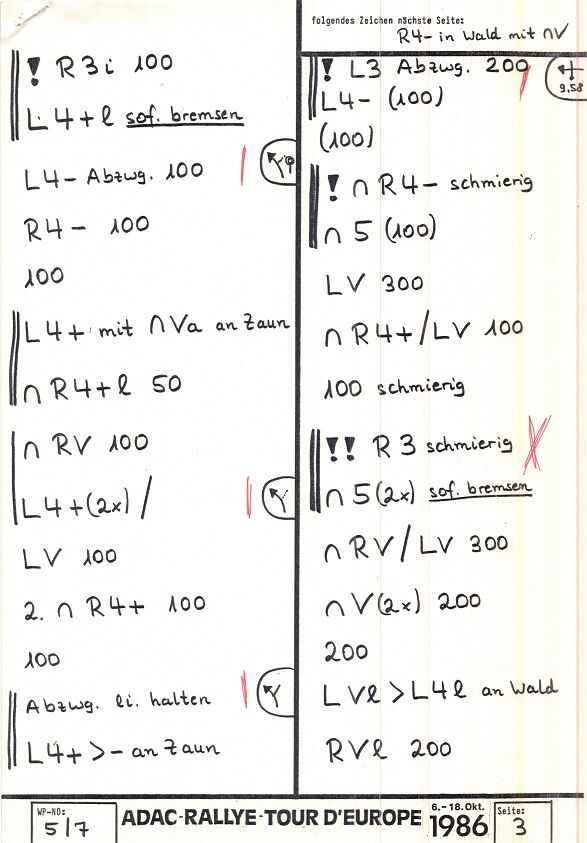 folgendes Zeichen nächste Seite:
R4- in Wald mit ∩V
! R3i 100
L4+l sof. bremsen
L4- Abzwg. 100
R4- 100
100
L4+ mit ∩Va an Zaun
∩ R4+l 50
∩ RV 100
L4+(2x) /
LV 100
2. ∩ R4+ 100
100
Abzwg. li. halten
L4+ >- an Zaun
! L3 Abzwg. 200
9,58
L4- (100)
(100)
! ∩ R4- schmierig
∩ 5 (100)
LV 300
∩ R4+/LV 100
100 schmierig
!! R3 schmierig
∩ 5(2x) sof. bremsen
∩ RV/LV 300
∩ V(2x) 200
200
LVl > L4l an Wald
RVl 200
WP-NO:
5/7
ADAC-RALLYE-TOUR D'EUROPE
6.-18.Okt.
1986
Seite:
3